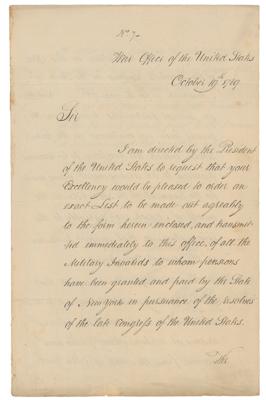 No 7
War Office of the United States
October 19th 1789
Sir
I am directed by the President
of the United States to request that your
Excellency would be pleased to order an
exact List to be made out agreably
to the form herein enclosed, and transmit
ted immediately to this office, of all the
Military Invalids to whom pensions
have been granted and paid by the State
of New York in pursuance of the resolves
of the late Congress of the United States.